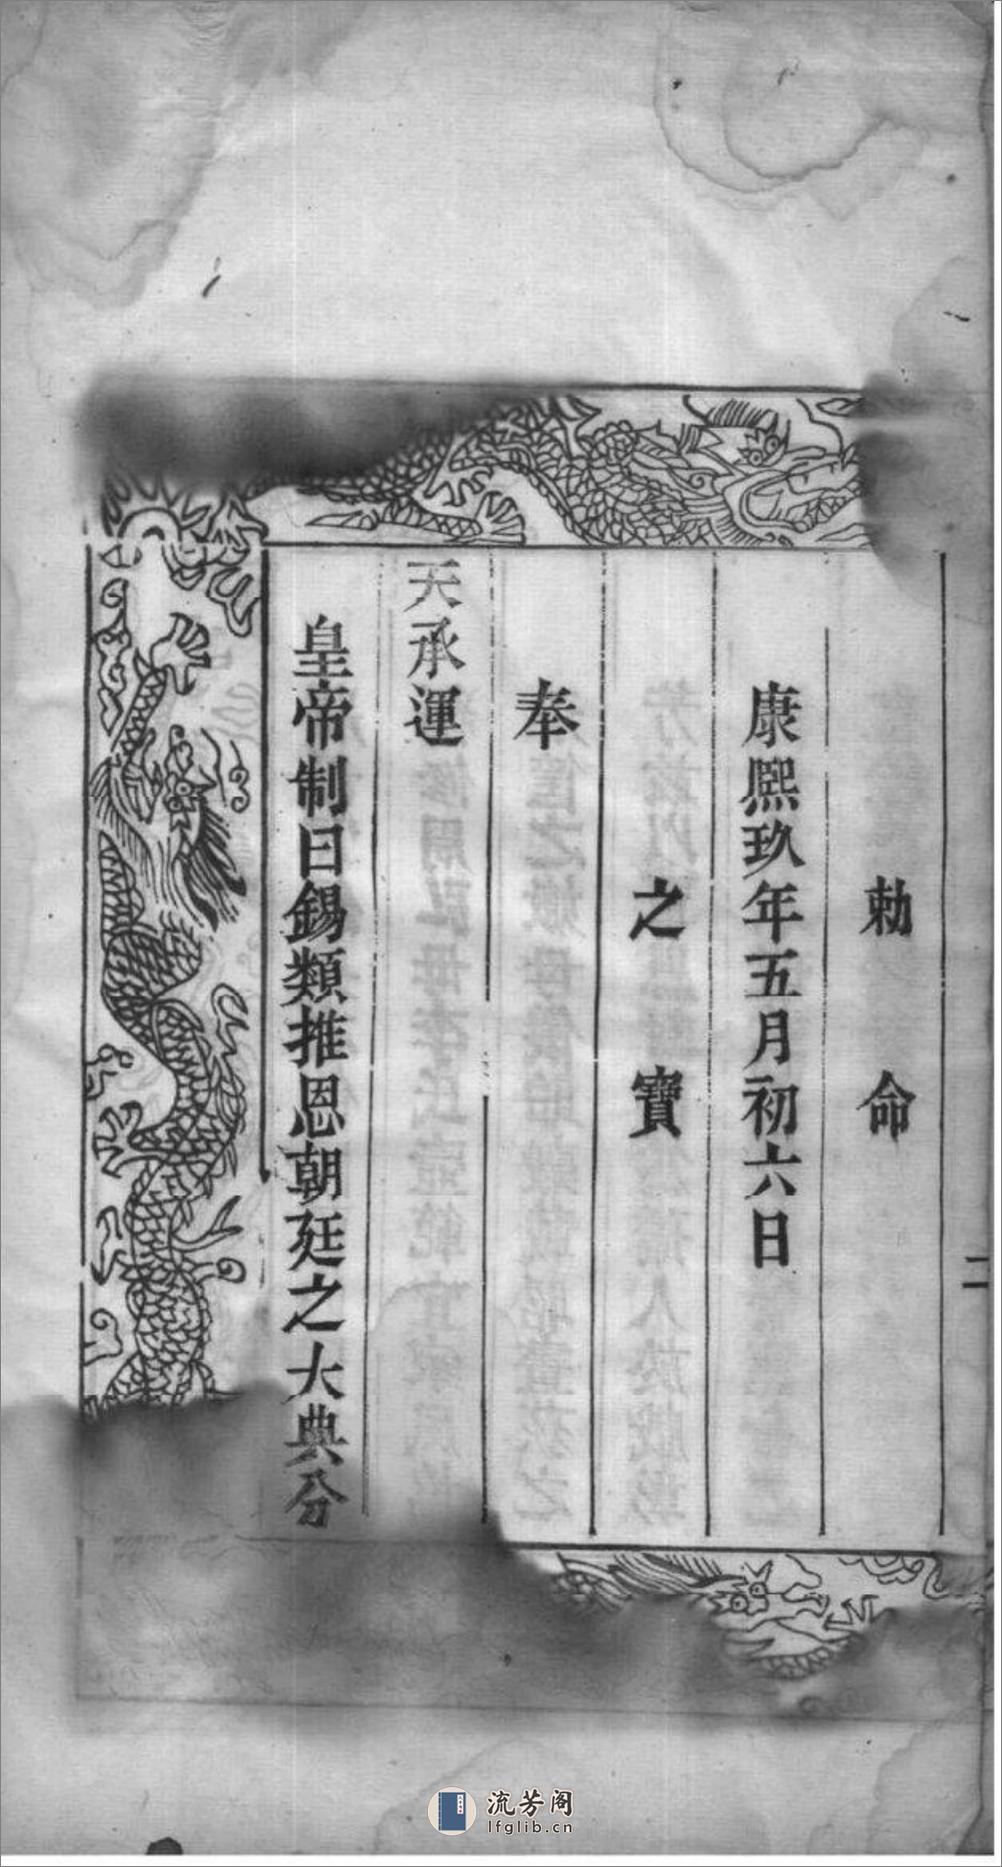 勅命
康熙玖年五月初六日
之寶
奉
天承運
皇帝制曰錫類推恩朝廷之大典分
二
流芳阁
lfglib.cn